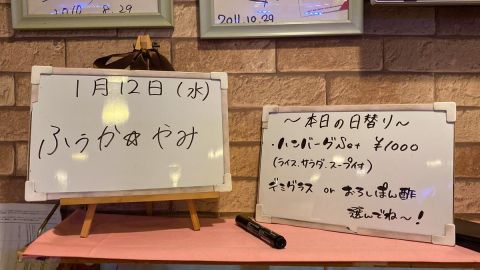 2010 8.29
2011.10.29
1月12日(水)
ふうか☆やみ
～本日の日替り～
・ハンバーグSet ¥1000
(ライス、サラダ、スープ付)
デミグラス or おろしぽん酢
選んでね～!